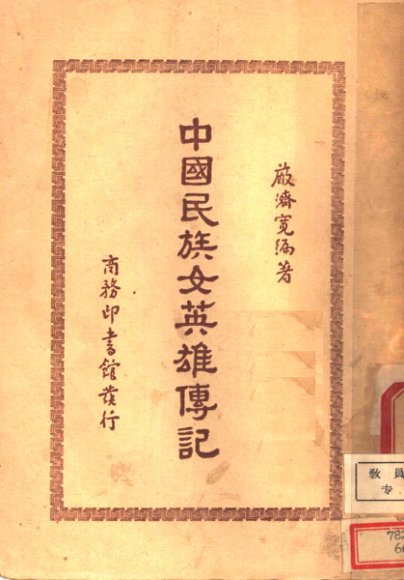 嚴濟寬編著
中國民族女英雄傳記
商務印書館發行
教員
专
782